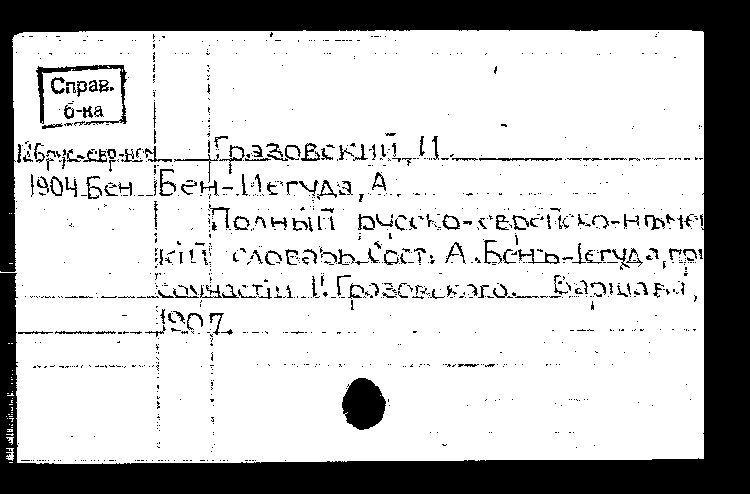 Справ.
б-ка
12брус.-евр-нем Гразовский, И.
1904 Бен Бен-Иегуда, А
Полный русско-еврейско-нѣмец
кій словарь. Сост. А. Бенъ-Іегуда, при
соучастіи И. Гразовскаго. Варшава,
1907.